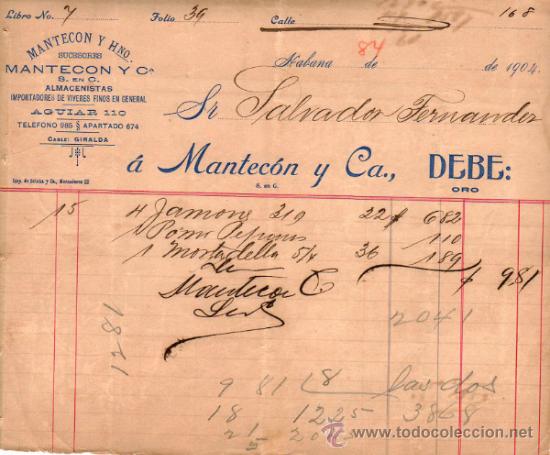 Libro No. 7 Folio 39 Calle 168
MANTECON Y HNO.
SUCESORES
MANTECON Y Cª
S. EN C.
ALMACENISTAS
IMPORTADORES DE VIVERES FINOS EN GENERAL
AGUIAR 110
TELEFONO 985 APARTADO 674
CABLE: GIRALDA
84
Habana de de 1904
Sr Salvador Fernandez
á Mantecón y Ca., DEBE:
S. en C. ORO
15 4 Jamones 319 22 682
1 Pomo Pepinos 110
1 Mortadella 5/4 36 189
$ 981
Mantecon C
2041
1281
9 81 18 las dos
18 1225 3868
todocoleccion
www.todocoleccion.net